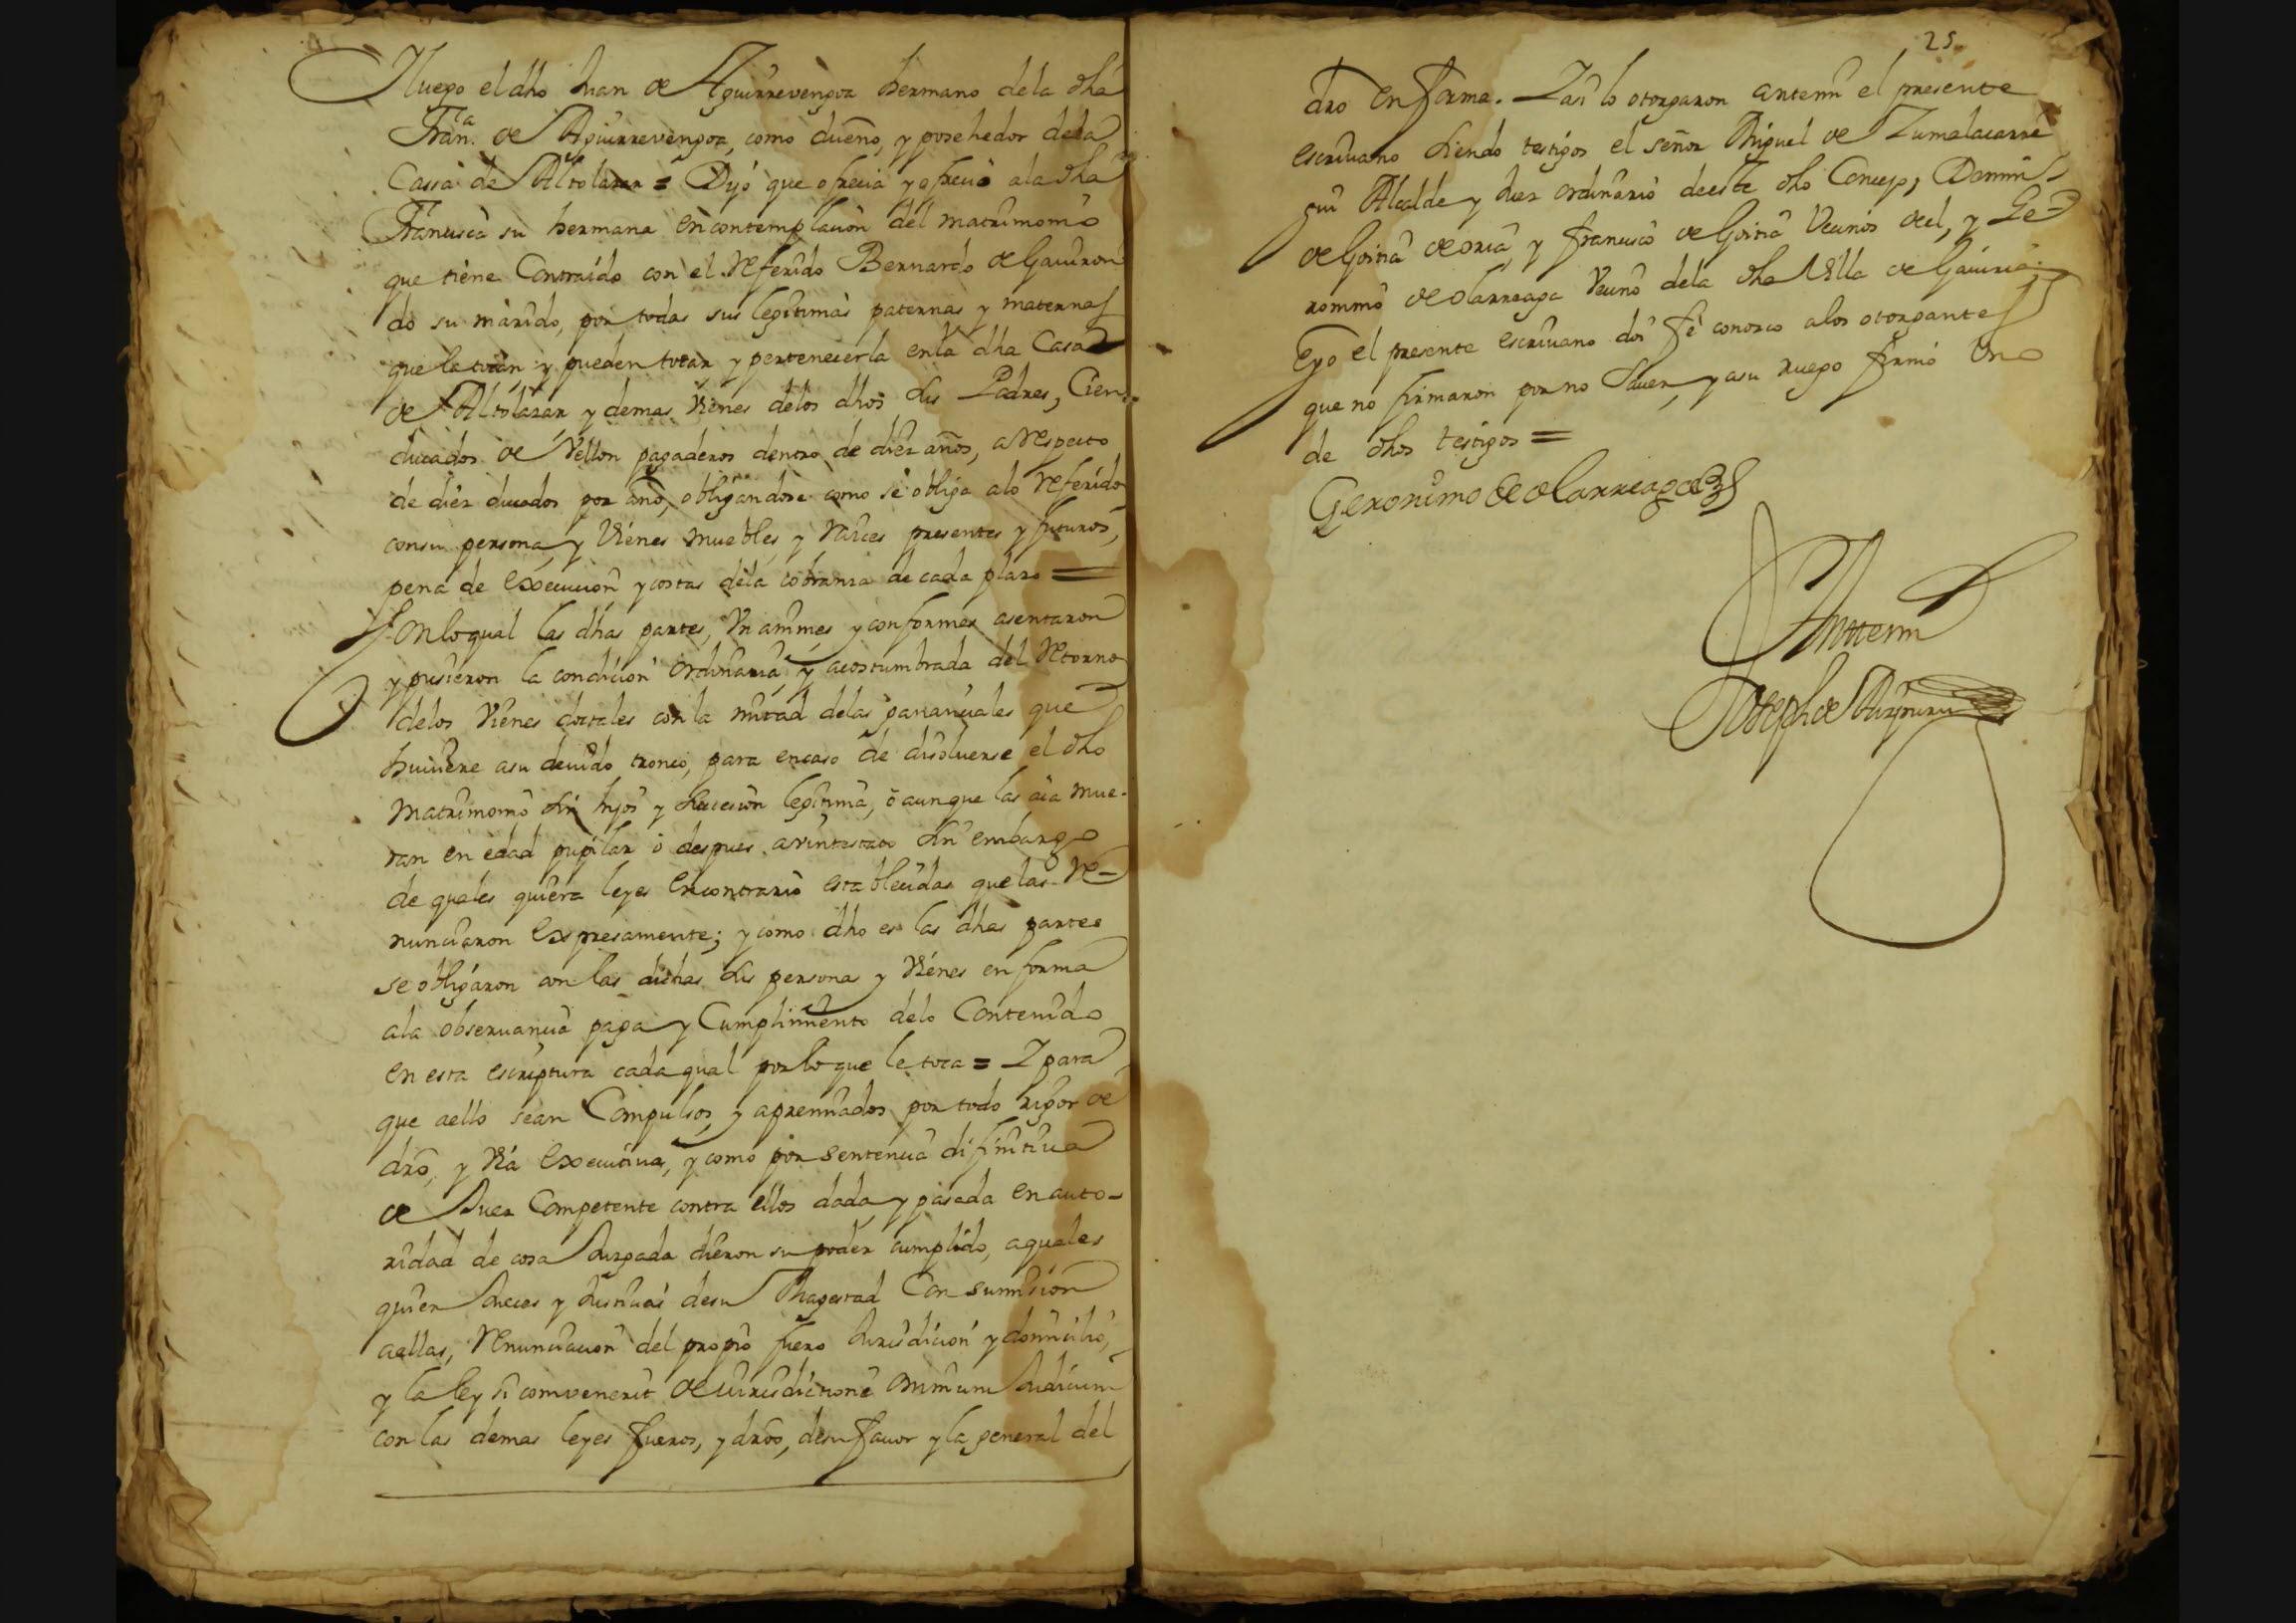 Yluego el dho Juan de Aguirrevengoa hermano dela dha
Franca. de Aguirrevengoa, como dueño, y posehedor dela
Cassa de Altolarar = Dijo que ofrecia y ofrecio ala dha
Francisca su hermana en contemplacion del matrimonio
que tiene Contraido con el Referido Bernardo de Gaviron
do su marido, por todas sus legitimas paternas y maternas
que le tocan y pueden tocar y pertenecerla enla dha Casa
de Altolarar y demas Vienes delos dhos sus Padres, Cien
ducados de Vellon pagaderos dentro de diez años, a Respecto
de diez ducados por año, obligandose como se obliga alo Referido
consu persona y Vienes muebles y Raices presentes y futuros,
pena de Execucion y costas dela cobranza de cada plazo =
Conloqual las dhas partes, Vnanimes y conformes asentaron
y pusieron la condicion ordinaria y acostumbrada del Retorno
delos Vienes dotales con la mitad delas gananciales que
huuiere asu deuido tronco, para encaso de disoluerse el dho
Matrimonio sin hijos y sucesion legitima, ò aunque las aia mue-
ran en edad pupilar ò despues avintestato sin embargo
de quales quiera leyes en contrario establecidas que las Re-
nunciaron Expresamente; y como dho es las dhas partes
se obligaron con las dichas sus persona y Vienes en forma
ala obseruancia paga y Cumplimiento delo Contenido
en esta escriptura cada qual por lo que le toca = Y para
que aello sean Compulsos, y apremiados por todo rigor de
dro, y Via Executiua, y como por sentencia difinitiua
de Juez Competente contra ellos dada y pasada en auto-
ridad de cosa Juzgada dieron su poder cumplido, aquales
quier Jueces y Justicias desu Magestad Con sumision
aellas, Renunciacion del propio fuero Jurisdicion y domicilio,
y la ley si convenerit de iurisdictione omnium Judicum
con las demas leyes fueros, y dros, desu fauor y la general del
25
dro en forma. Y asi lo otorgaron antemi el presente
escriuano siendo testigos el señor Miguel de Zumalacarre
gui Alcalde y Juez ordinario deeste dho Concejo, Domin
de Goitia de oria, y francisco de Goitia Vecinos de el, y Ge-
ronimo de olarreaga Vecino dela dha Villa de Gauiria;
Eyo el presente escriuano doi fe conozco alos otorgantes
que no firmaron por no sauer, y asu ruego firmò Vno
de dhos testigos =
Geronimo de olarreaga
Antemi
Joseph de Aizpuru